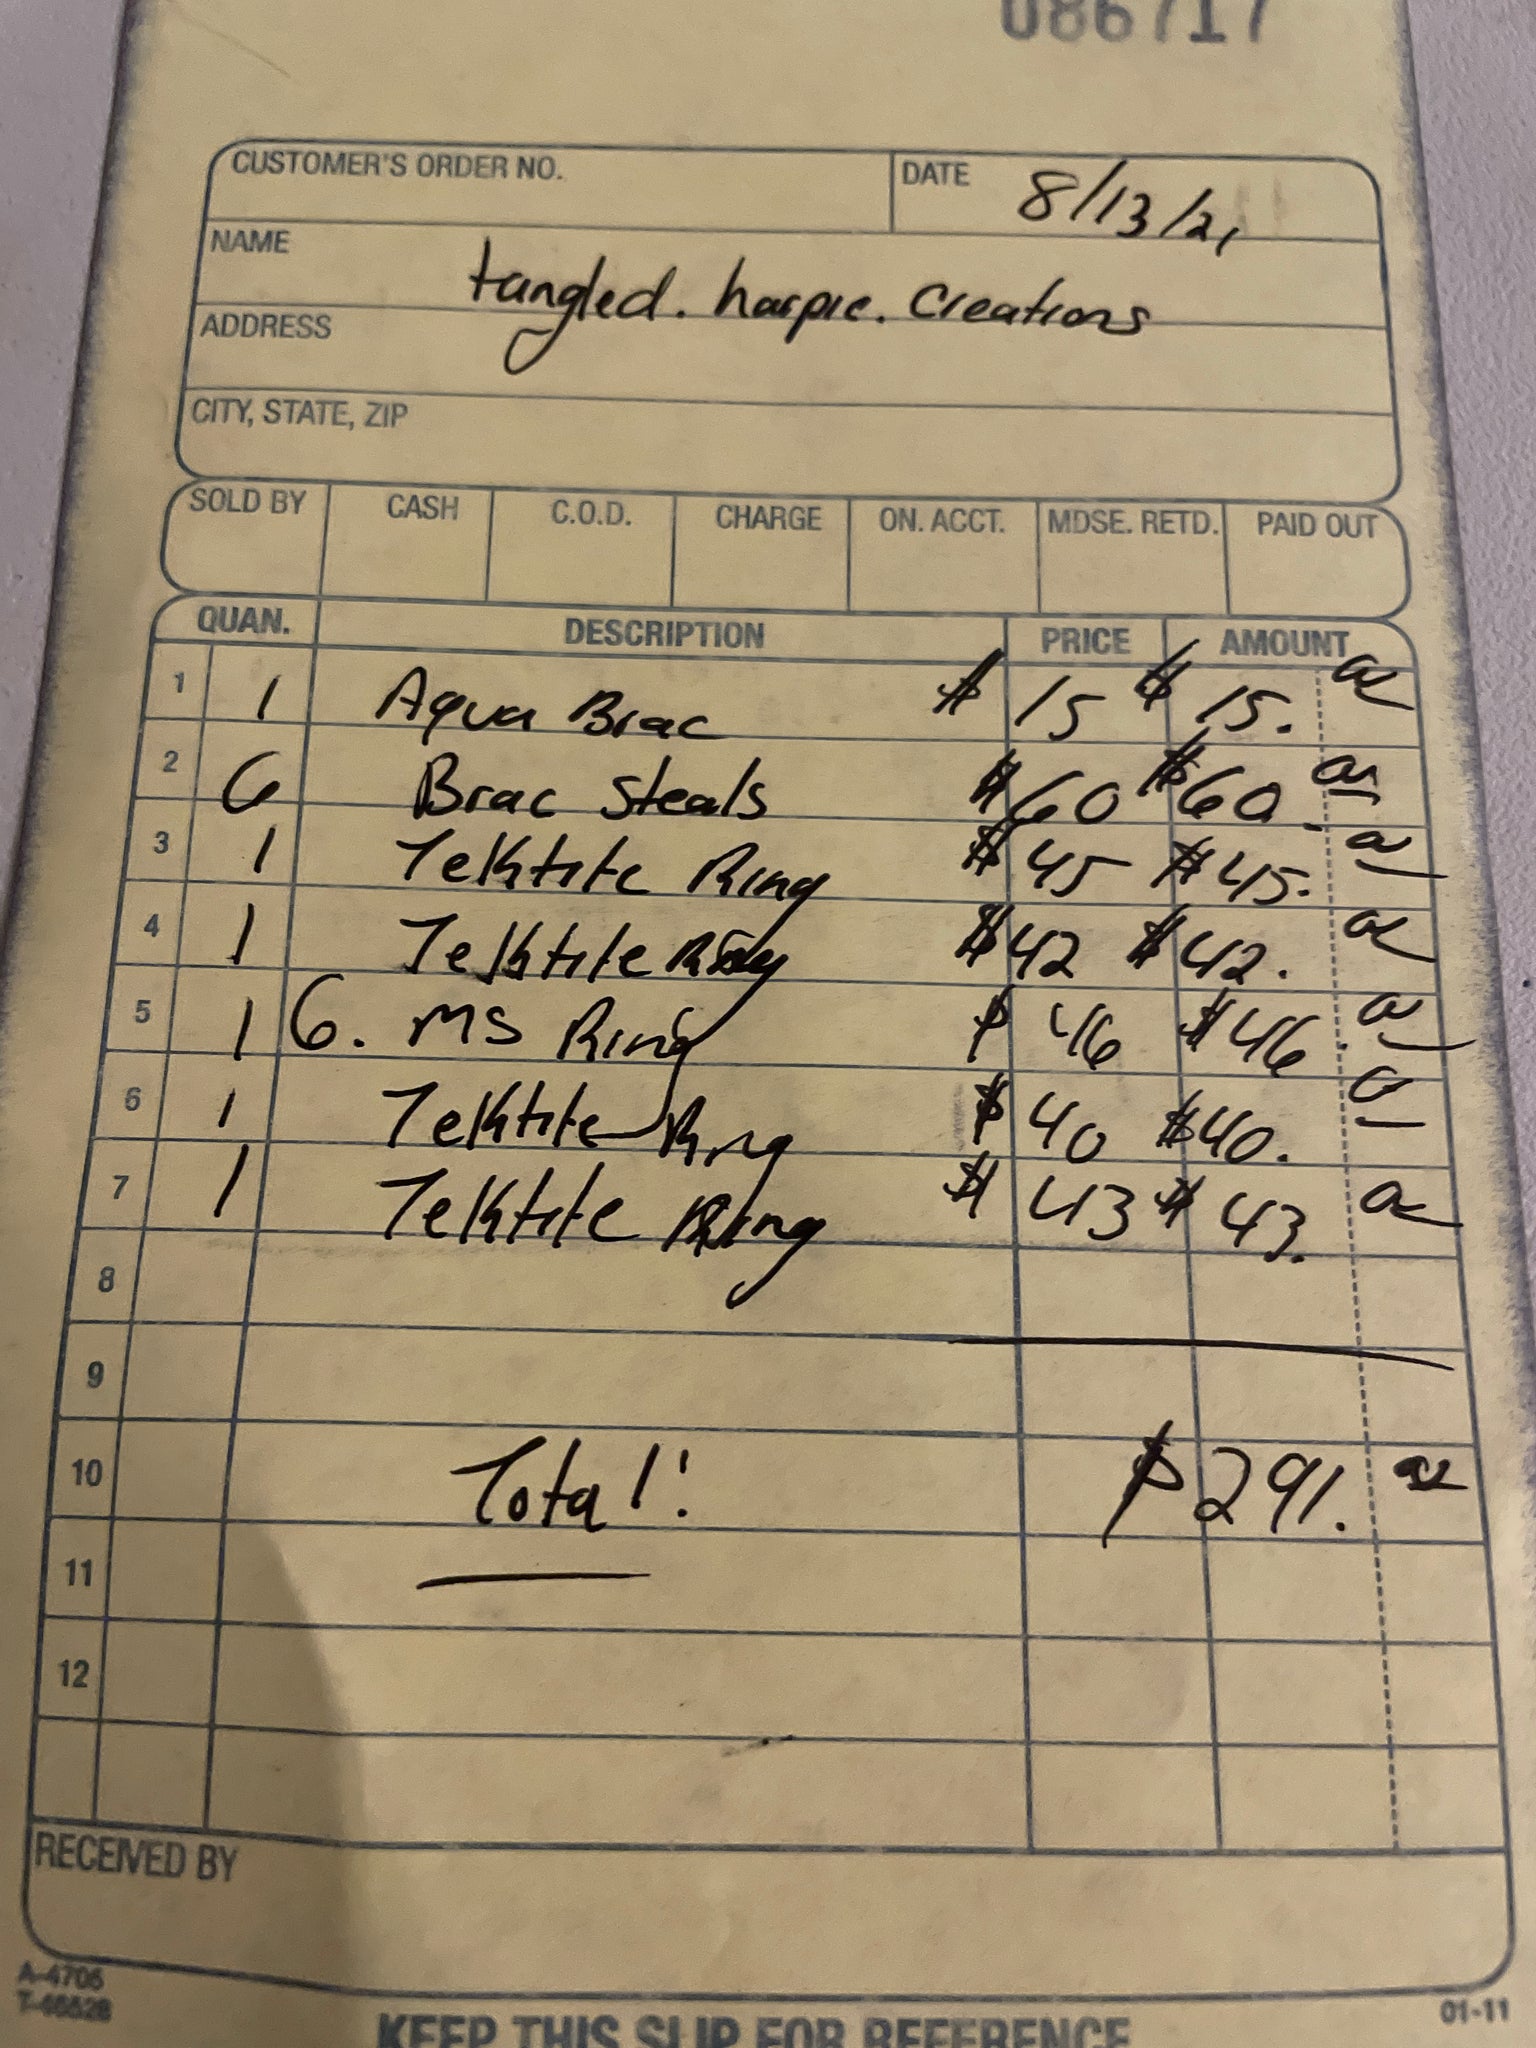 086717
CUSTOMER'S ORDER NO. DATE 8/13/21
NAME tangled. harpie. Creations
ADDRESS
CITY, STATE, ZIP
SOLD BY CASH C.O.D. CHARGE ON. ACCT. MDSE. RETD. PAID OUT
QUAN. DESCRIPTION PRICE AMOUNT
1 1 Aqua Brac $ 15 $ 15. 00
2 6 Brac Steals $ 60 $ 60. 00
3 1 Telktite Ring $ 45 $ 45. 00
4 1 Telktite Ring $ 42 $ 42. 00
5 1 G. MS Ring $ 46 $ 46. 00
6 1 Telktite Ring $ 40 $ 40. 00
7 1 Telktite Ring $ 43 $ 43. 00
8
9
10 Total: $ 291. 00
11
12
RECEIVED BY
A-4705
T-46528 01-11
KEEP THIS SLIP FOR REFERENCE